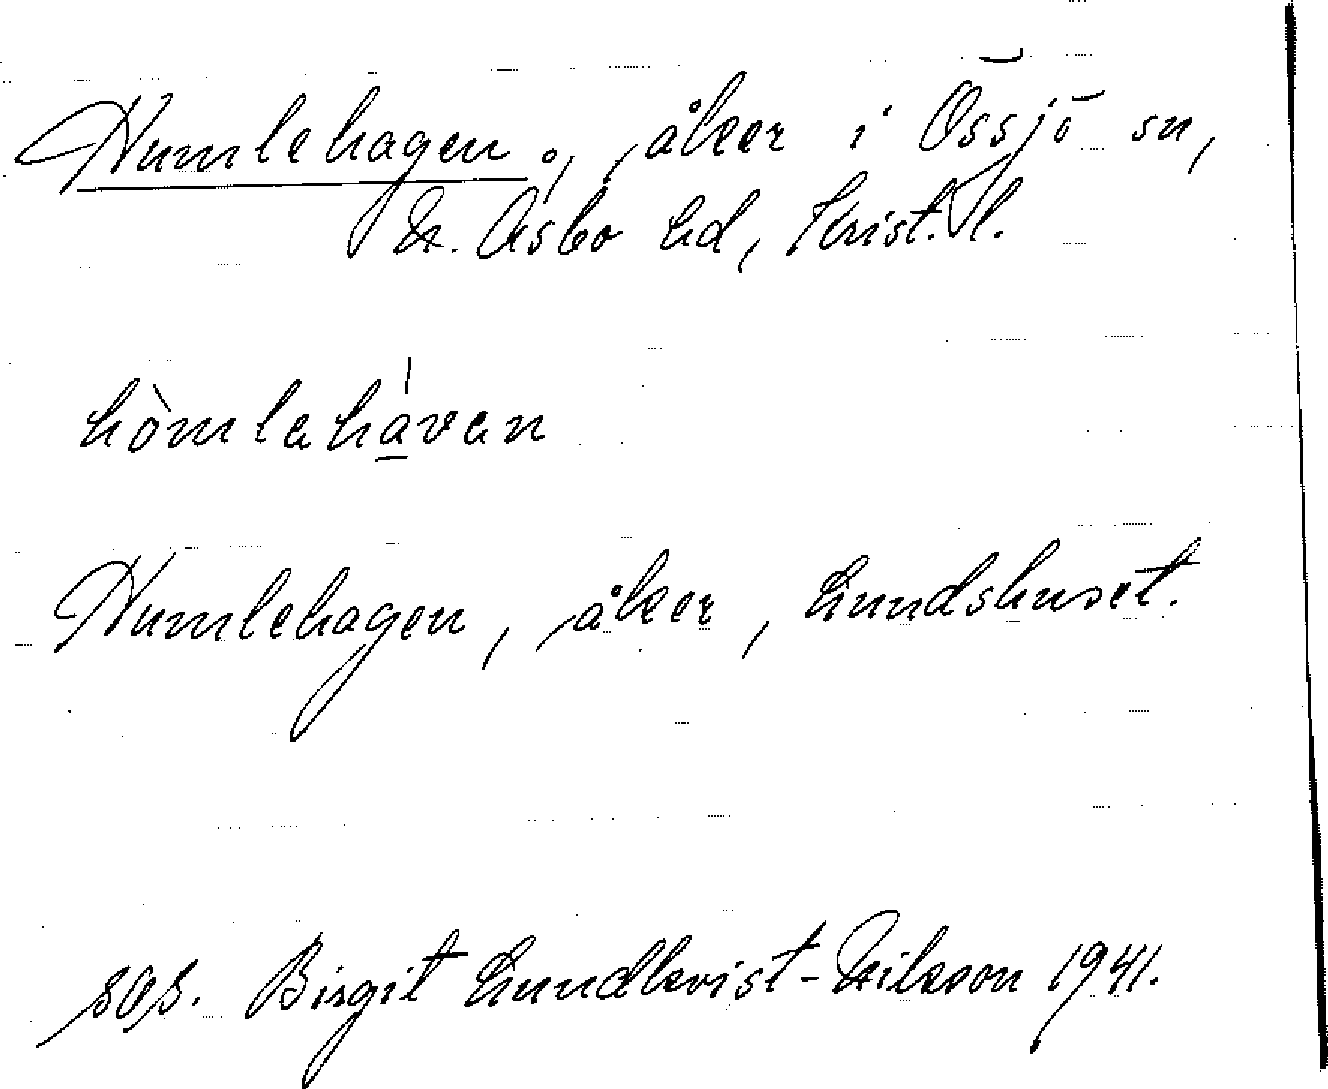 Humlehagen°, åker i Össjö sn,
N. Åsbo hd, Krist. l.
hòmlahávan
Humlehagen, åker, Lundshuset.
sas. Birgit Lundkvist-Nilsson 1941.